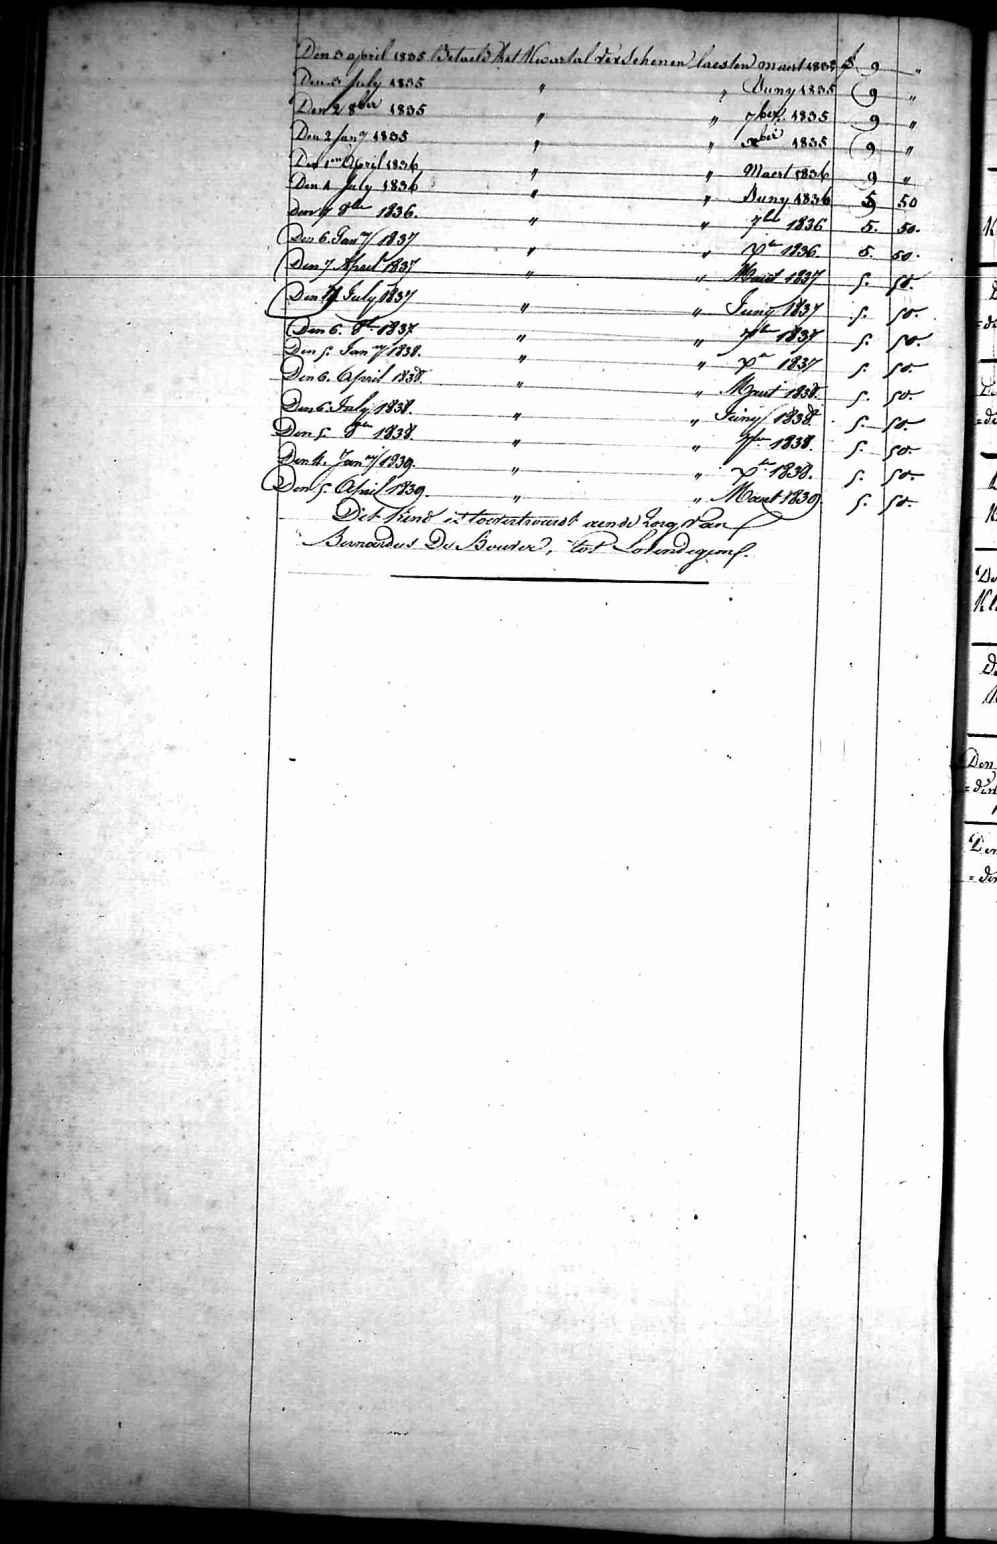 Den 3 april 1835 betaeld het Kwartal verschenen laesten maert 1835 f 9 "
Den 3 July 1835 " " Juny 1835 9 "
Den 2 8ber 1835 " " 7ber 1835 9 "
Den 2 Jany 1835 " " xber 1835 9 "
Den 1en April 1836 " " Maert 1836 9 "
Den 1 July 1836 " " Juny 1836 5 50
den 7 8ber 1836. " " 7ber 1836 5. 50.
Den 6 Jany 1837 " " xer 1836. 5. 50.
Den 7 April 1837 " " Maert 1837 5. 50.
Den July 1837 " " Juny 1837 5. 50
Den 6. 8r 1837. " " 7er 1837 5. 50.
Den 5. Jany 1838. " " xr 1837 5. 50.
Den 6. April 1838. " " Maert 1838. 5. 50.
Den 6. July 1838. " " Juny 1838. 5. 50.
Den 5. 8er 1838. " " 7er 1838. 5. 50.
Den 4. Jany 1839. " " xer 1838. 5. 50.
Den 5. April 1839. " " Maert 1839. 5. 50.
Dit kend is toevertrouwt aende zorg van
Bernardus De Bouver, tot
Den
Den